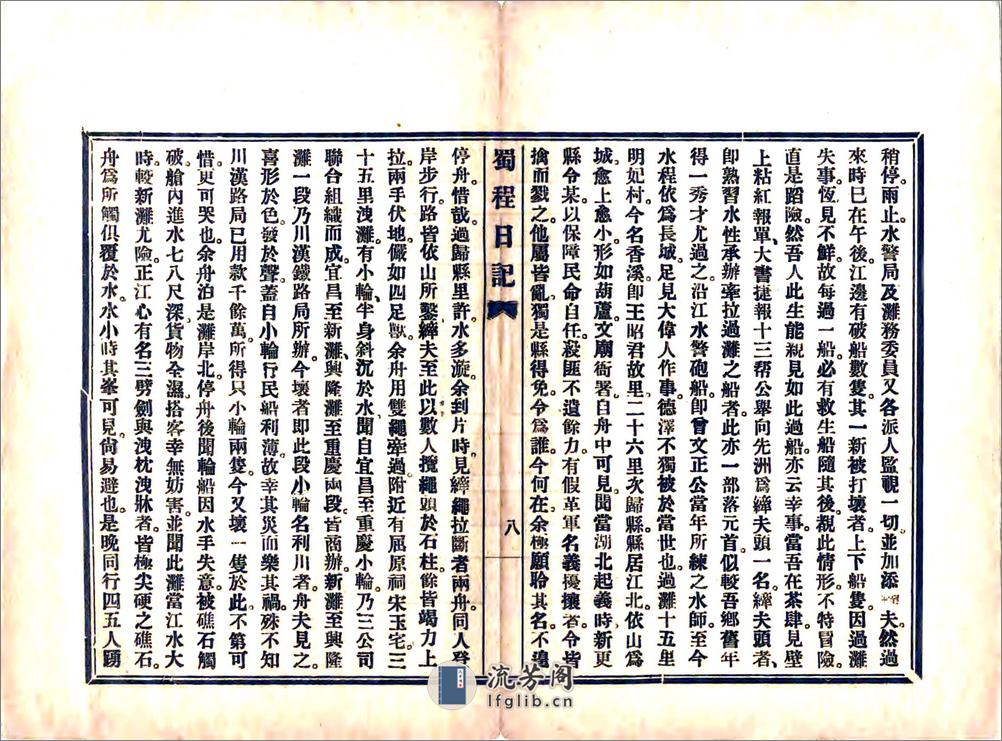 稍停。雨止。水警局及灘務委員。又各派人監視一切。並加添縴夫。然過
來時已在午後。江邊有破船數隻。其一新被打壞者。上下船隻。因過灘
失事。恆見不鮮。故每過一船。必有救生船隨其後。覩此情形。不特冒險。
直是蹈險。然吾人此生能親見如此過船。亦云幸事。當吾在茶肆。見壁
上粘紅報單、大書捷報十三帮公舉向先洲爲縴夫頭一名。縴夫頭者、
卽熟習水性承辦牽拉過灘之船者。此亦一部落元首。似較吾鄉舊年
得一秀才尤過之。沿江水警砲船。卽曾文正公當年所練之水師。至今
水程依爲長城。足見大偉人作事。德澤不獨被於當世也。過灘十五里
明妃村。今名香溪。卽王昭君故里。二十六里次歸縣。縣居江北。依山爲
城。愈上愈小。形如葫蘆。文廟衙署。自舟中可見。聞當湖北起義時。新更
縣令某。以保障民命自任。殺匪不遺餘力。有假革軍名義擾攘者。令皆
擒而戮之。他屬皆亂。獨是縣得免。令爲誰。今何在。余極願聆其名。不遑
蜀程日記
八
停舟。惜哉。過歸縣里許。水多漩。余到片時。見縴繩拉斷者兩舟。同人登
岸步行。路皆依山所鑿。縴夫至此。以數人攬繩頭於石柱。餘皆竭力上
拉。兩手伏地。儼如四足獸。余舟用雙繩牽過。附近有屈原祠宋玉宅。三
十五里洩灘。有小輪、半身斜沉於水。聞自宜昌至重慶小輪。乃三公司
聯台組織而成。宜昌至新灘、興隆灘至重慶兩段。皆商辦。新灘至興隆
灘一段。乃川漢鐵路局所辦。今壞者卽此段小輪。名利川者。舟夫見之。
喜形於色。發於聲。蓋自小輪行。民船利薄。故幸其災而樂其禍。殊不知
川漢路局。已用款千餘萬。所得只小輪兩隻。今又壞一隻於此。不第可
惜。更可哭也。余舟泊是灘岸北。停舟後。聞輪船因水手失意。被礁石觸
破。艙內進水七八尺深。貨物全濕。搭客幸無妨害。並聞此灘當江水大
時。較新灘尤險。正江心有名三劈劍與洩枕洩牀者。皆極尖硬之礁石。
舟爲所觸。俱覆於水。水小時。其峯可見。尙易避也。是晚同行四五人踴
流芳阁
lfglib.cn